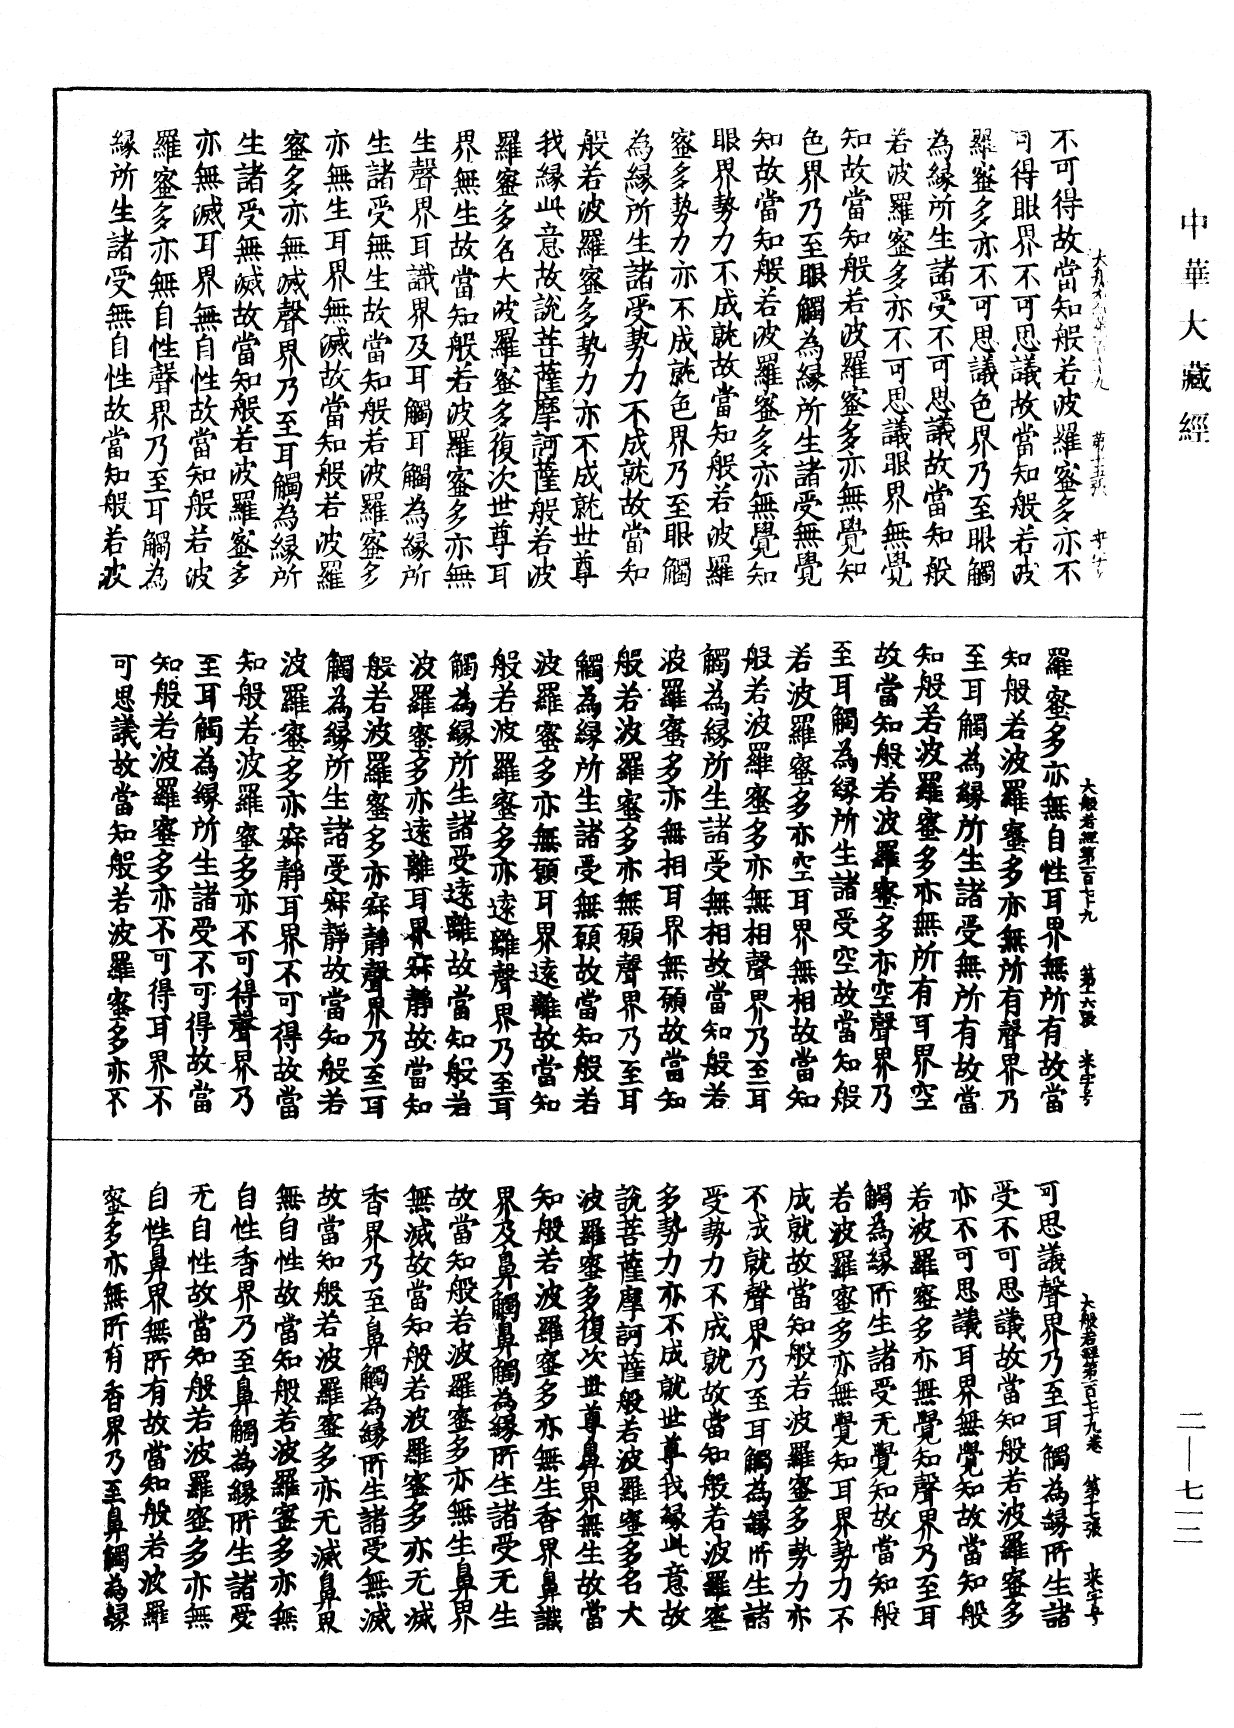 中華大藏經
不可得故當知般若波羅蜜多亦不
可得眼界不可思議故當知般若波
羅蜜多亦不可思議色界乃至眼觸
為緣所生諸受不可思議故當知般
若波羅蜜多亦不可思議眼界無覺
知故當知般若波羅蜜多亦無覺知
色界乃至眼觸為緣所生諸受無覺
知故當知般若波羅蜜多亦無覺知
眼界勢力不成就故當知般若波羅
蜜多勢力亦不成就色界乃至眼觸
為緣所生諸受勢力不成就故當知
般若波羅蜜多勢力亦不成就世尊
我緣此意故說菩薩摩訶薩般若波
羅蜜多名大波羅蜜多復次世尊耳
界無生故當知般若波羅蜜多亦無
生聲界耳識界及耳觸耳觸為緣所
生諸受無生故當知般若波羅蜜多
亦無生耳界無滅故當知般若波羅
蜜多亦無滅聲界乃至耳觸為緣所
生諸受無滅故當知般若波羅蜜多
亦無滅耳界無自性故當知般若波
羅蜜多亦無自性聲界乃至耳觸為
緣所生諸受無自性故當知般若波
大般若經第一百七十九 第十六張 來字号
羅蜜多亦無自性耳界無所有故當
知般若波羅蜜多亦無所有聲界乃
至耳觸為緣所生諸受無所有故當
知般若波羅蜜多亦無所有耳界空
故當知般若波羅蜜多亦空聲界乃
至耳觸為緣所生諸受空故當知般
若波羅蜜多亦空耳界無相故當知
般若波羅蜜多亦無相聲界乃至耳
觸為緣所生諸受無相故當知般若
波羅蜜多亦無相耳界無願故當知
般若波羅蜜多亦無願聲界乃至耳
觸為緣所生諸受無願故當知般若
波羅蜜多亦無願耳界遠離故當知
般若波羅蜜多亦遠離聲界乃至耳
觸為緣所生諸受遠離故當知般若
波羅蜜多亦遠離耳界寂靜故當知
般若波羅蜜多亦寂靜聲界乃至耳
觸為緣所生諸受寂靜故當知般若
波羅蜜多亦寂靜耳界不可得故當
知般若波羅蜜多亦不可得聲界乃
至耳觸為緣所生諸受不可得故當
知般若波羅蜜多亦不可得耳界不
可思議故當知般若波羅蜜多亦不
大般若經第一百七十九卷 第十七張 來字号
可思議聲界乃至耳觸為緣所生諸
受不可思議故當知般若波羅蜜多
亦不可思議耳界無覺知故當知般
若波羅蜜多亦無覺知聲界乃至耳
觸為緣所生諸受无覺知故當知般
若波羅蜜多亦無覺知耳界勢力不
成就故當知般若波羅蜜多勢力亦
不成就聲界乃至耳觸為緣所生諸
受勢力不成就故當知般若波羅蜜
多勢力亦不成就世尊我緣此意故
說菩薩摩訶薩般若波羅蜜多名大
波羅蜜多復次世尊鼻界無生故當
知般若波羅蜜多亦無生香界鼻識
界及鼻觸鼻觸為緣所生諸受无生
故當知般若波羅蜜多亦無生鼻界
無滅故當知般若波羅蜜多亦无滅
香界乃至鼻觸為緣所生諸受無滅
故當知般若波羅蜜多亦无滅鼻界
無自性故當知般若波羅蜜多亦無
自性香界乃至鼻觸為緣所生諸受
无自性故當知般若波羅蜜多亦無
自性鼻界無所有故當知般若波羅
蜜多亦無所有香界乃至鼻觸為緣
二—七一二